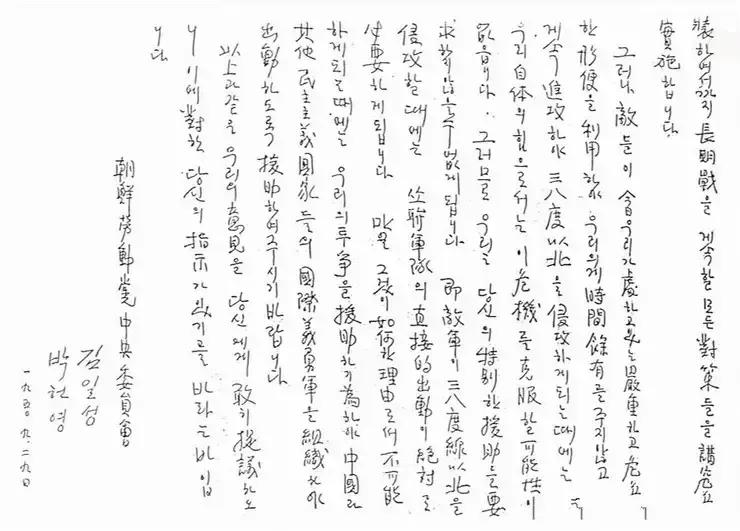 裝하여서까지 長期戰을 게속할 모든 對策들을 講究코
實施합니다
그러나 敵들이 今日 우리가 處하고있는 嚴重하고 危急
한 形便을 利用하야 우리의게 時間餘有를 주지않고
게속 進攻하야 三八度以北을 侵攻하게되는 때에는
우리 自体의 힘으로서는 이 危機를 克服할 可能性이
없음니다. 그러므로 우리는 당신의 特別한 援助를 要
求하지 않을수 없게 됩니다 即 敵軍이 三八度線以北을
侵攻할 때에는 쏘聯軍隊의 直接的出動이 絶對로
必要하게 됩니다 만일 그것이 如何한 理由로써 不可能
하게되는때에는 우리의 투爭을 援助하기 爲하야 中國과
其他 民主主義國家들의 國際義勇軍을 組織하야
出動하도록 援助하여주시기 바랍니다
以上과같은 우리의 意見을 당신에게 敢히 提議하오
니 이에 對한 당신의 指示가 있기를 바라는바입
니다
朝鮮勞動党中央委員會
김일성
박헌영
一九五〇.九.二九日